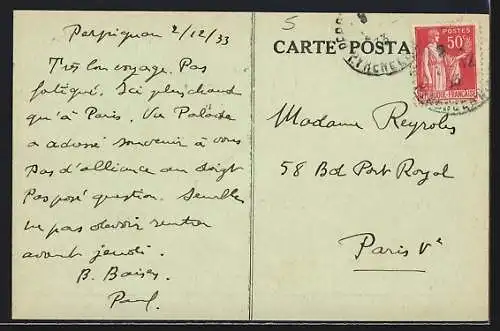 Perpignan 2/12/33
Très bon voyage. Pas
fatigué. Ici plus chaud
qu'à Paris. Vu
a adressé souvenir à vous
pas d'alliance au doigt
Pas posé question. Semble
ne pas devoir rentrer
avant jeudi.
B. Baises
Paul
5
CARTE POSTA
POSTES
50c
FRANÇAISE
Madame Reyroles
58 Bd Port Royal
Paris Ve